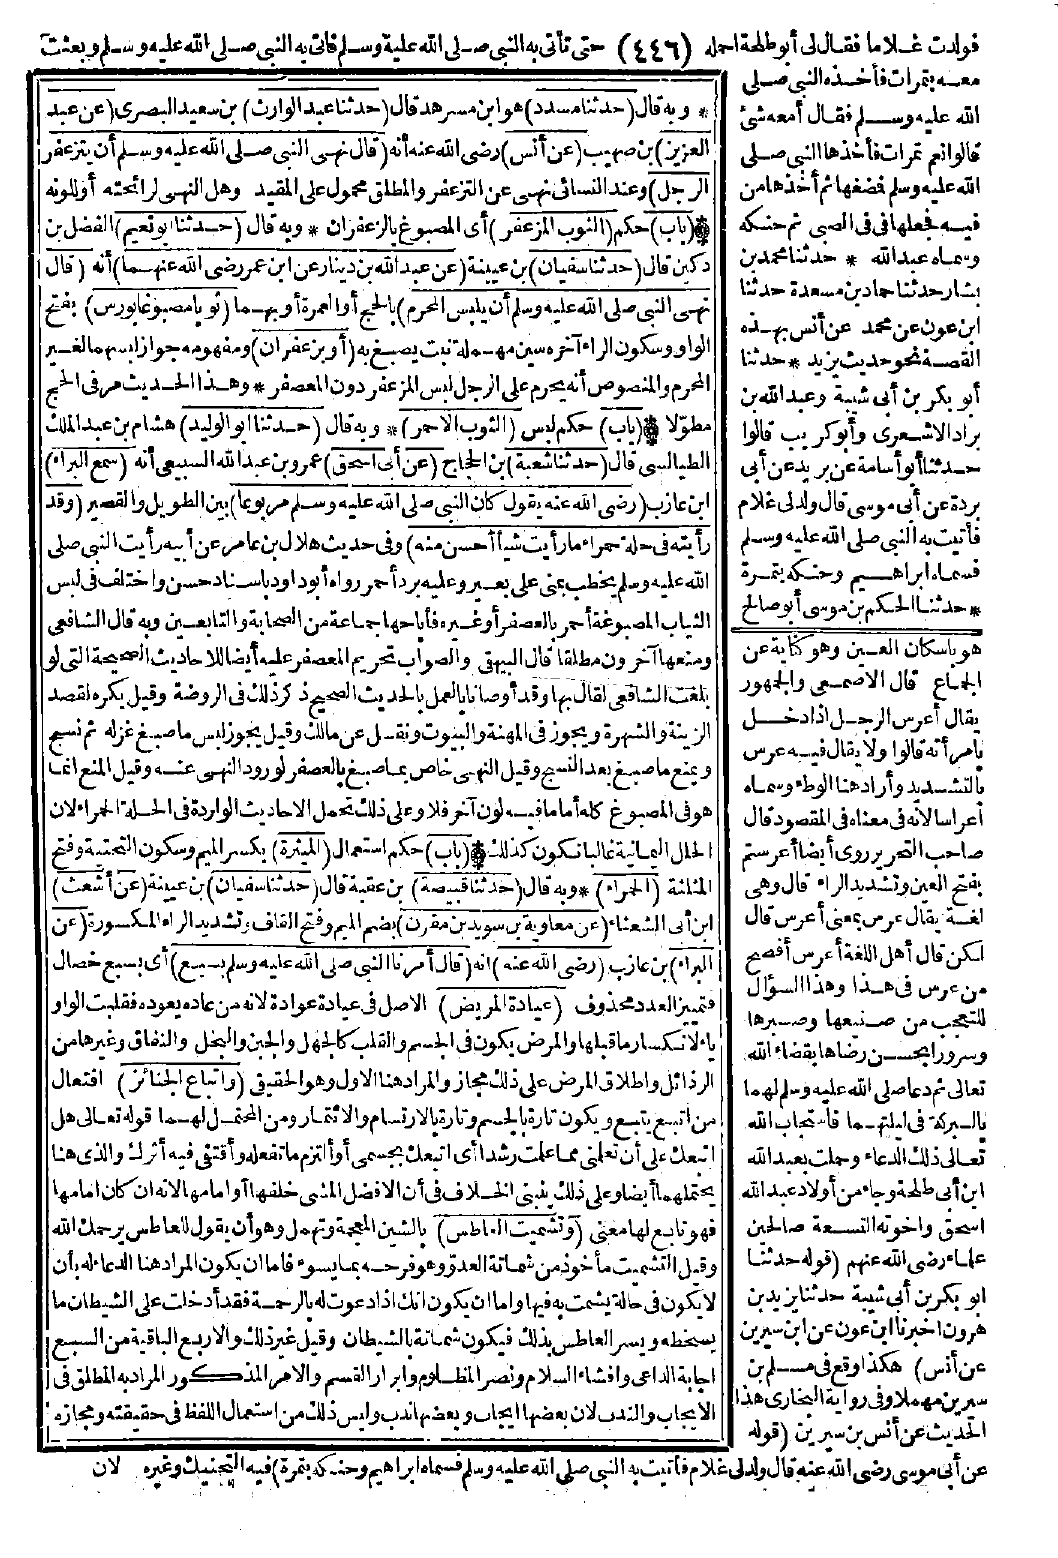 فولدت غلاما فقال لى أبو طلحة احمله (٤٤٦) حتى تأتى به النبى صلى الله عليه وسلم فاتى به النبى صلى الله عليه وسلم وبعثت
معه بتمرات فأخذه النبى صلى
الله عليه وسلم فقال أمعه شئ
قالوا نعم تمرات فأخذها النبى صلى
الله عليه وسلم فمضغها ثم أخذها من
فيه فجعلها فى فى الصبى ثم حنكه
وسماه عبد الله * حدثنا محمد بن
بشار حدثنا حماد بن مسعدة حدثنا
ابن عون عن محمد عن أنس بهذه
القصة نحو حديث يزيد * حدثنا
أبو بكر بن أبى شيبة وعبد الله بن
براد الاشعرى وأبو كريب قالوا
حدثنا أبو أسامة عن بريد عن أبى
بردة عن أبى موسى قال ولد لى غلام
فأتيت به النبى صلى الله عليه وسلم
فسماه ابراهيم وحنكه بتمرة
* حدثنا الحكم بن موسى أبو صالح
هو باسكان العين وهو كناية عن
الجماع قال الاصمعى والجمهور
يقال أعرس الرجل اذا دخل
بامرأته قالوا ولا يقال فيه عرس
بالتشديد وأراد هنا الوطء وسماه
أعراسا لانه فى معناه فى المقصود قال
صاحب التحرير روى أيضا أعرستم
بفتح العين وتشديد الراء قال وهى
لغة يقال عرس بمعنى أعرس قال
لكن قال أهل اللغة أعرس أفصح
من عرس فى هذا وهذا السؤال
للتعجب من صنيعها وصبرها
وسرورا بحسن رضاها بقضاء الله
تعالى ثم دعا صلى الله عليه وسلم لهما
بالبركة فى ليلتهما فاستجاب الله
تعالى ذلك الدعاء وحملت بعبد الله
ابن أبى طلحة وجاء من أولاد عبد الله
اسحق واخوته التسعة صالحين
علماء رضى الله عنهم (قوله حدثنا
ابو بكر بن أبى شيبة حدثنا يزيد بن
هرون اخبرنا ابن عون عن ابن سيرين
عن أنس) هكذا وقع فى مسلم بن
سيرين مهملا وفى رواية البخارى هذا
الحديث عن أنس بن سيرين (قوله
عن أبى موسى رضى الله عنه قال ولد لى غلام فأتيت به النبى صلى الله عليه وسلم فسماه ابراهيم وحنكه بتمرة) فيه التحنيك وغيره لان
* وبه قال (حدثنا مسدد) هو ابن مسرهد قال (حدثنا عبد الوارث) بن سعيد البصرى (عن عبد
العزيز) بن صهيب (عن أنس) رضى الله عنه أنه (قال نهى النبى صلى الله عليه وسلم أن يتزعفر
الرجل) وعند النسائى نهى عن التزعفر والمطلق محمول على المقيد وهل النهى لرائحته أو للونه
(باب) حكم (الثوب المزعفر) أى المصبوغ بالزعفران * وبه قال (حدثنا ابو نعيم) الفضل بن
دكين قال (حدثنا سفيان) بن عيينة (عن عبد الله بن دينار عن ابن عمر رضى الله عنهما) أنه (قال
نهى النبى صلى الله عليه وسلم أن يلبس المحرم) بالحج أو العمرة أو بهما (ثوبا مصبوغا بورس) بفتح
الواو وسكون الراء آخره سين مهملة نبت يصبغ به (أو بزعفران) ومفهومه جواز لبسهما لغير
المحرم والمنصوص أنه يحرم على الرجل لبس المزعفر دون المعصفر * وهذا الحديث مر فى الحج
مطولا (باب) حكم لبس (الثوب الاحمر) * وبه قال (حدثنا ابو الوليد) هشام بن عبد الملك
الطيالسى قال (حدثنا شعبة) بن الحجاج (عن أبى اسحق) عمرو بن عبد الله السبيعى أنه (سمع البراء)
ابن عازب (رضى الله عنه يقول كان النبى صلى الله عليه وسلم مربوعا) بين الطويل والقصير (وقد
رأيته فى حلة حمراء ما رأيت شيأ أحسن منه) وفى حديث هلال بن عامر عن أبيه رأيت النبى صلى
الله عليه وسلم يخطب بمنى على بعير وعليه برد أحمر رواه أبو داود باسناد حسن واختلف فى لبس
الثياب المصبوغة أحمر بالعصفر أو غيره فأباحها جماعة من الصحابة والتابعين وبه قال الشافعى
ومنعها آخرون مطلقا قال البيهقى والصواب تحريم المعصفر عليه أيضا للاحاديث الصحيحة التى لو
بلغت الشافعى لقال بها وقد أوصانا بالعمل بالحديث الصحيح ذكر ذلك فى الروضة وقيل يكره لقصد
الزينة والشهرة ويجوز فى المهنة والبيوت ونقل عن مالك وقيل يجوز لبس ما صبغ غزله ثم نسج
ويمنع ما صبغ بعد النسج وقيل النهى خاص بما صبغ بالعصفر لورود النهى عنه وقيل المنع انما
هو فى المصبوغ كله أما ما فيه لون آخر فلا وعلى ذلك تحمل الاحاديث الواردة فى الحلة الحمراء لان
الحلل اليمانية غالبا تكون كذلك (باب) حكم استعمال (الميثرة) بكسر الميم وسكون التحتية وفتح
المثلثة (الحمراء) * وبه قال (حدثنا قبيصة) بن عقبة قال (حدثنا سفيان) بن عيينة (عن أشعث)
ابن أبى الشعثاء (عن معاوية بن سويد بن مقرن) بضم الميم وفتح القاف وتشديد الراء المكسورة (عن
البراء) بن عازب (رضى الله عنه) انه (قال أمرنا النبى صلى الله عليه وسلم بسبع) أى بسبع خصال
فتمييز العدد محذوف (عيادة المريض) الاصل فى عيادة عوادة لانه من عاده يعوده فقلبت الواو
ياء لانكسار ما قبلها والمرض يكون فى الجسم والقلب كالجهل والجبن والبخل والنفاق وغيرها من
الرذائل واطلاق المرض على ذلك مجاز والمراد هنا الاول وهو الحقيقى (واتباع الجنائز) افتعال
من اتبع يتبع ويكون تارة بالجسم وتارة بالارتسام والائتمار ومن المحتمل لهما قوله تعالى هل
اتبعك على أن تعلمنى مما علمت رشدا أى اتبعك بجسمى أو ألتزم ما تفعله وأقتفى فيه أثرك والذى هنا
يحتملهما أيضا وعلى ذلك ينبنى الخلاف فى أن الافضل المشى خلفها أو امامها لانه ان كان امامها
فهو تابع لها معنى (وتشميت العاطس) بالشين المعجمة وتهمل وهو أن يقول للعاطس يرحمك الله
وقيل التشميت مأخوذ من شماتة العدو وهو فرحه بما يسوء فاما ان يكون المراد هنا الدعاء له بأن
لا يكون فى حالة يشمت به فيها واما ان يكون انك اذا دعوت له بالرحمة فقد أدخلت على الشيطان ما
يسخطه ويسر العاطس بذلك فيكون شماتة بالشيطان وقيل غير ذلك والاربع الباقية من السبع
اجابة الداعى وافشاء السلام ونصر المظلوم وابرار القسم والامر المذكور المراد به المطلق فى
الايجاب والندب لان بعضها ايجاب وبعضها ندب وليس ذلك من استعمال اللفظ فى حقيقته ومجازه